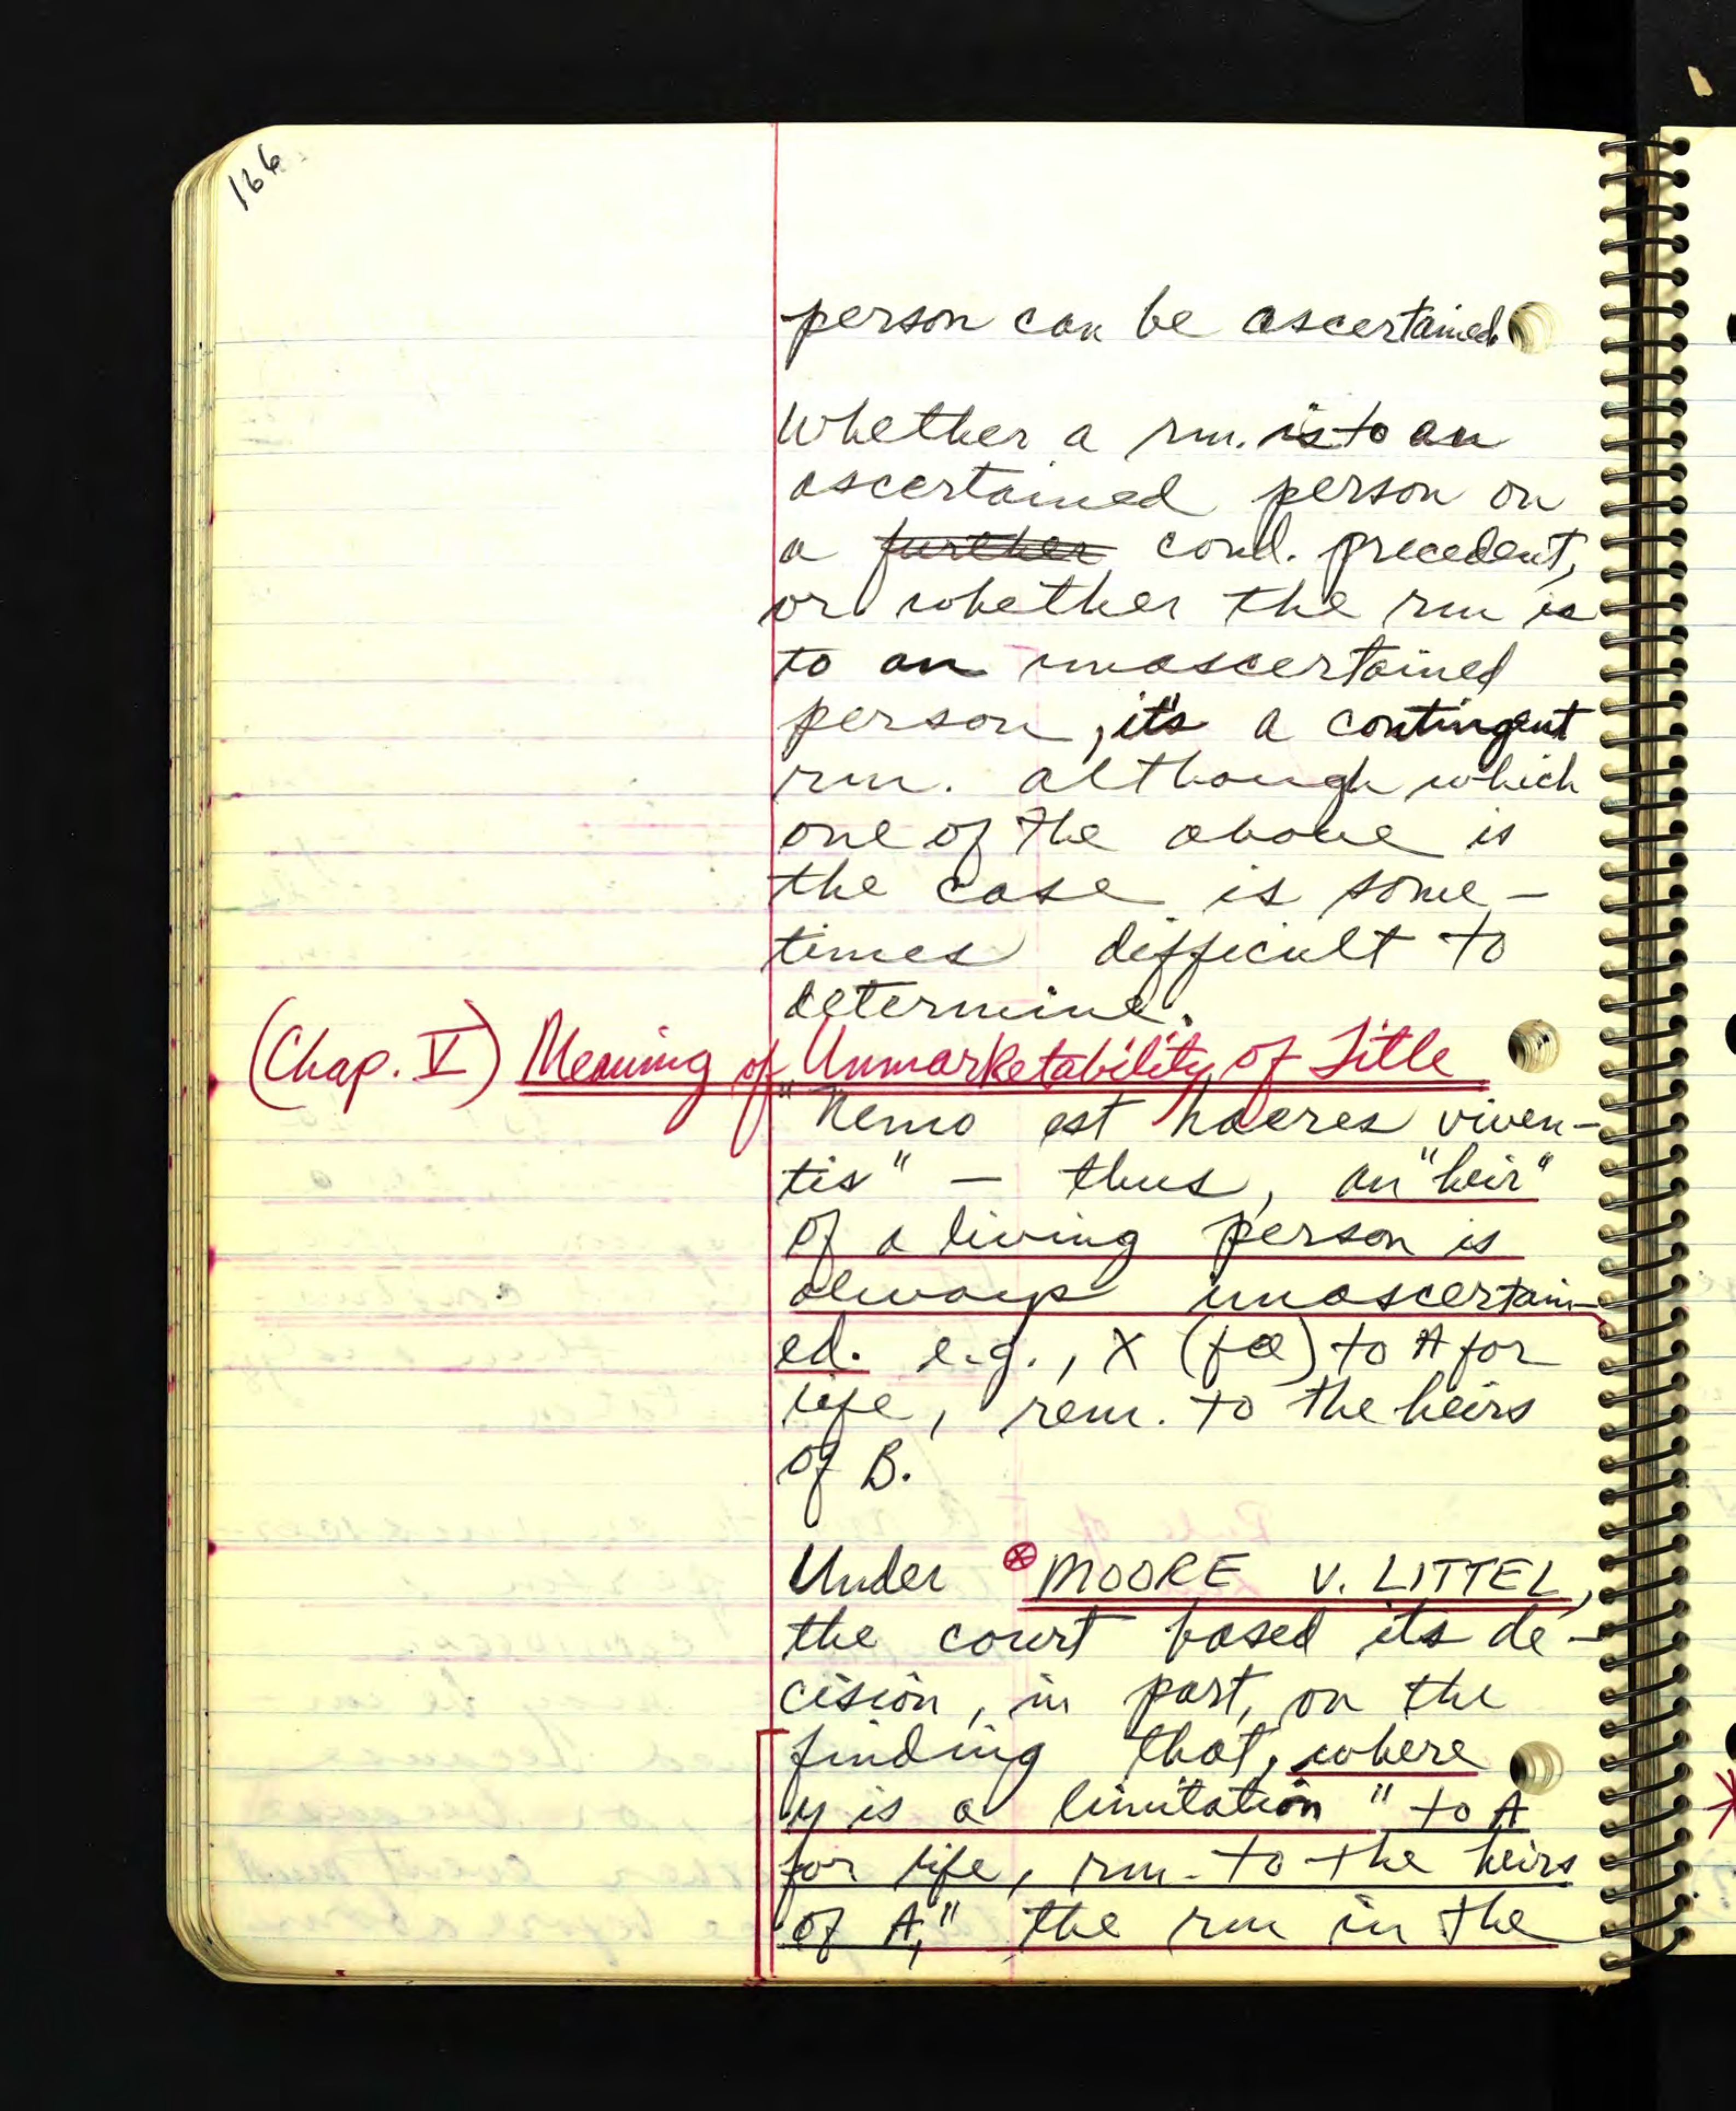 166
person can be ascertained.
Whether a rm. is to an
ascertained person on
a further cond. precedent,
or whether the rm is
to an unascertained
person, it's a contingent
rm. although which
one of the above is
the case is some-
times difficult to
determine.
(Chap. V) Meaning of Unmarketability of Title
"Nemo est haeres viven-
tis" — thus, an "heir"
of a living person is
always unascertain-
ed. e.g., X (fa) to A for
life, rem. to the heirs
of B.
Under ⊗ MOORE V. LITTEL,
the court based its de-
cision, in part, on the
finding that, where
y is a limitation "to A
for life, rm. to the heirs
of A," the rm in the